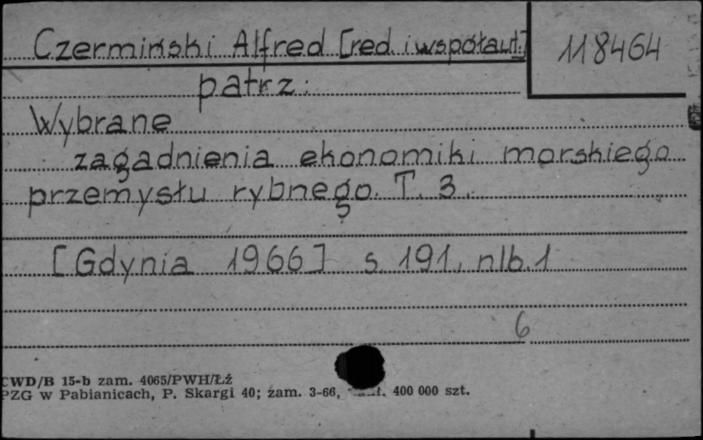 Czermiński Alfred [red. i współaut.]
118464
patrz:
Wybrane
zagadnienia ekonomiki morskiego
przemysłu rybnego. T. 3.
[Gdynia 1966] s. 191, nlb. 1
6
CWD/B 15-b zam. 4065/PWH/Łź
PZG w Pabianicach, P. Skargi 40; zam. 3-66, 400 000 szt.